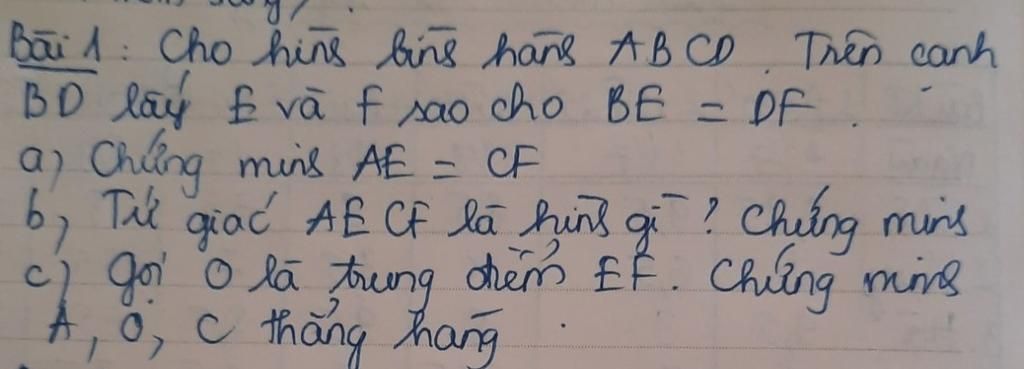 Bài 1: Cho hình bình hành ABCD. Trên cạnh
BD lấy E và F sao cho BE = DF.
a) Chứng minh AE = CF
b) Tứ giác AECF là hình gì? Chứng minh
c) Gọi O là trung điểm EF. Chứng minh
A, O, C thẳng hàng.